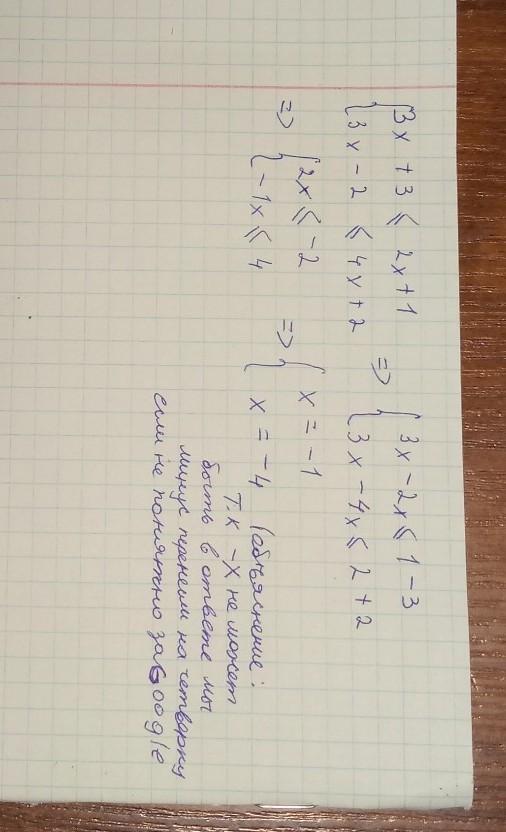 {3x + 3 ⩽ 2x + 1
{3x - 2 ⩽ 4x + 2
=> {3x - 2x ⩽ 1 - 3
{3x - 4x ⩽ 2 + 2
=> {2x ⩽ -2
{-1x ⩽ 4
=> {x = -1
{x = -4
(объяснение:
т.к -x не может
быть в ответе мы
минус перенели на четверку
если не понятно заGoogle